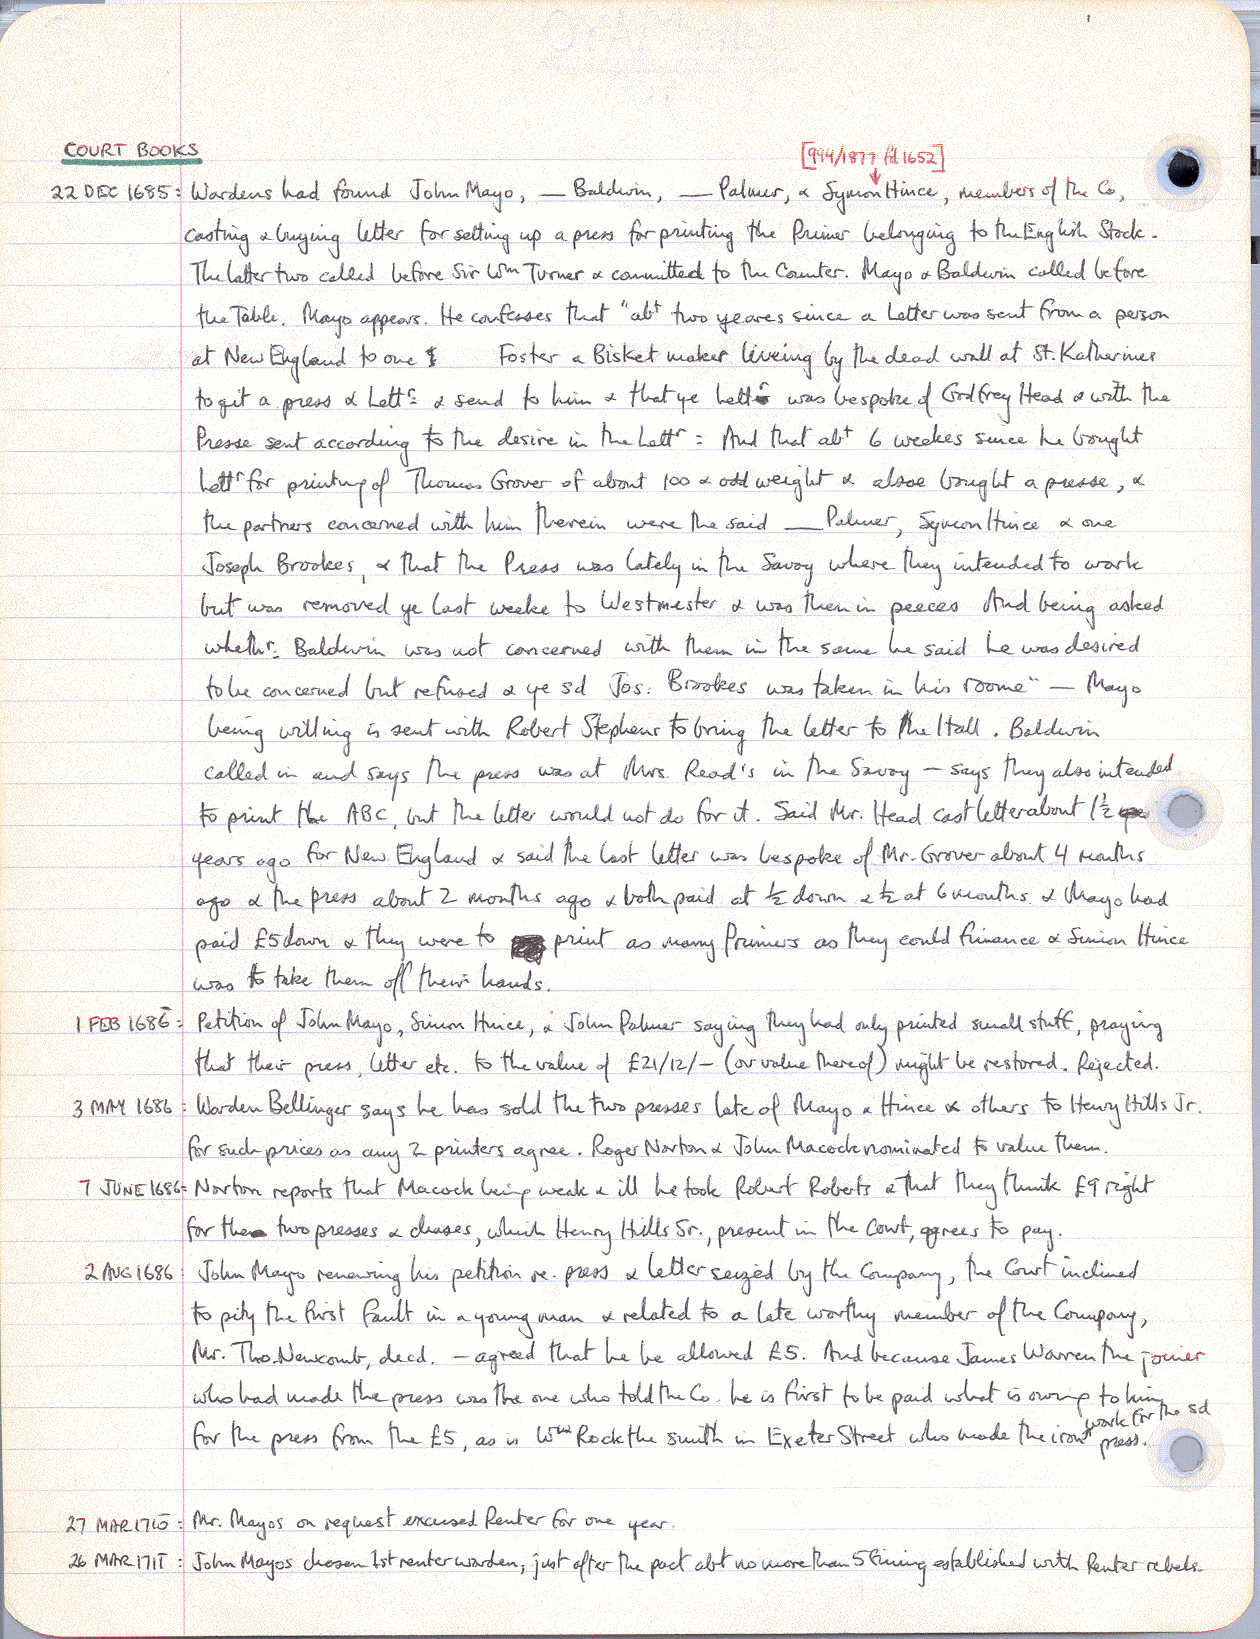 COURT BOOKS
[994/1877 fd 1652]
22 DEC 1685: Wardens had found John Mayo, — Baldwin, — Palmer, & Symon Hince, members of the Co,
casting & buying letter for setting up a press for printing the Primer belonging to the English Stock.
The latter two called before Sir Wm Turner & committed to the Counter. Mayo & Baldwin called before
the Table. Mayo appears. He confesses that "abt two yeares since a Letter was sent from a person
at New England to one Foster a Bisket maker liveing by the dead wall at St. Katherines
to git a press & Lettr: & send to him & that ye Lettr was bespoke of Godfrey Head & with the
Presse sent according to the desire in the Lettr: And that abt 6 weekes since he bought
Lettr for printing of Thomas Grover of about 100 & odd weight & alsoe bought a presse, &
the partners concerned with him therein were the said — Palmer, Symon Hince & one
Joseph Brookes, & that the Press was lately in the Savoy where they intended to work
but was removed ye last weeke to Westmester & was then in peeces And being asked
whethr: Baldwin was not concerned with them in the same he said he was desired
to be concerned but refused & ye sd Jos: Brookes was taken in his roome" — Mayo
being willing is sent with Robert Stephens to bring the letter to the Hall. Baldwin
called in and says the press was at Mrs. Read's in the Savoy — says they also intended
to print the ABC, but the letter would not do for it. Said Mr. Head cast letter about 1½
years ago for New England & said the last letter was bespoke of Mr. Grover about 4 months
ago & the press about 2 months ago & both paid at ½ down & ½ at 6 months & Mayo had
paid £5 down & they were to print as many Primers as they could finance & Simon Hince
was to take them off their hands.
1 FEB 1686: Petition of John Mayo, Simon Hince, & John Palmer saying they had only printed small stuff, praying
that their press, letter etc. to the value of £21/12/- (or value thereof) might be restored. Rejected.
3 MAY 1686: Warden Bellinger says he has sold the two presses late of Mayo & Hince & others to Henry Hills Jr.
for such prices as any 2 printers agree. Roger Norton & John Macock nominated to value them.
7 JUNE 1686: Norton reports that Macock being weak & ill he took Robert Roberts & that they think £9 right
for the two presses & chases, which Henry Hills Sr., present in the Court, agrees to pay.
2 AUG 1686: John Mayo renewing his petition re. press & letter seized by the Company, the Court inclined
to pity the first fault in a young man & related to a late worthy member of the Company,
Mr. Tho. Newcomb, decd. — agreed that he be allowed £5. And because James Warren the joiner
who had made the press was the one who told the Co. he is first to be paid what is owing to him
for the press from the £5, as is Wm Rock the smith in Exeter Street who made the iron work for the sd press.
27 MAR 1710: Mr. Mayos on request excused Renter for one year.
26 MAR 1711: John Mayos chosen 1st renter warden, just after the pact abt no more than 5 fining established with Renter rebels.